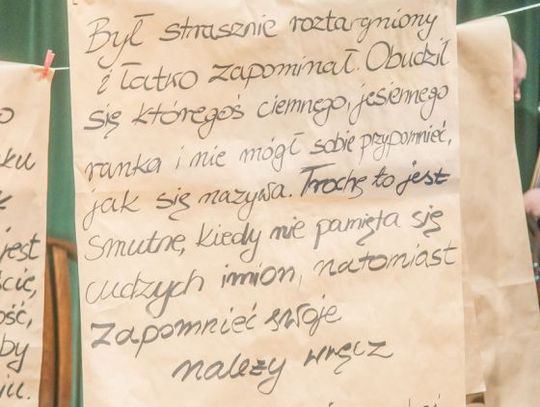 Był strasznie roztargniony
i łatwo zapominał. Obudził
się któregoś ciemnego, jesiennego
ranka i nie mógł sobie przypomnieć,
jak się nazywa. Trochę to jest
smutne, kiedy nie pamięta się
cudzych imion, natomiast
zapomnieć swoje
należy wręcz